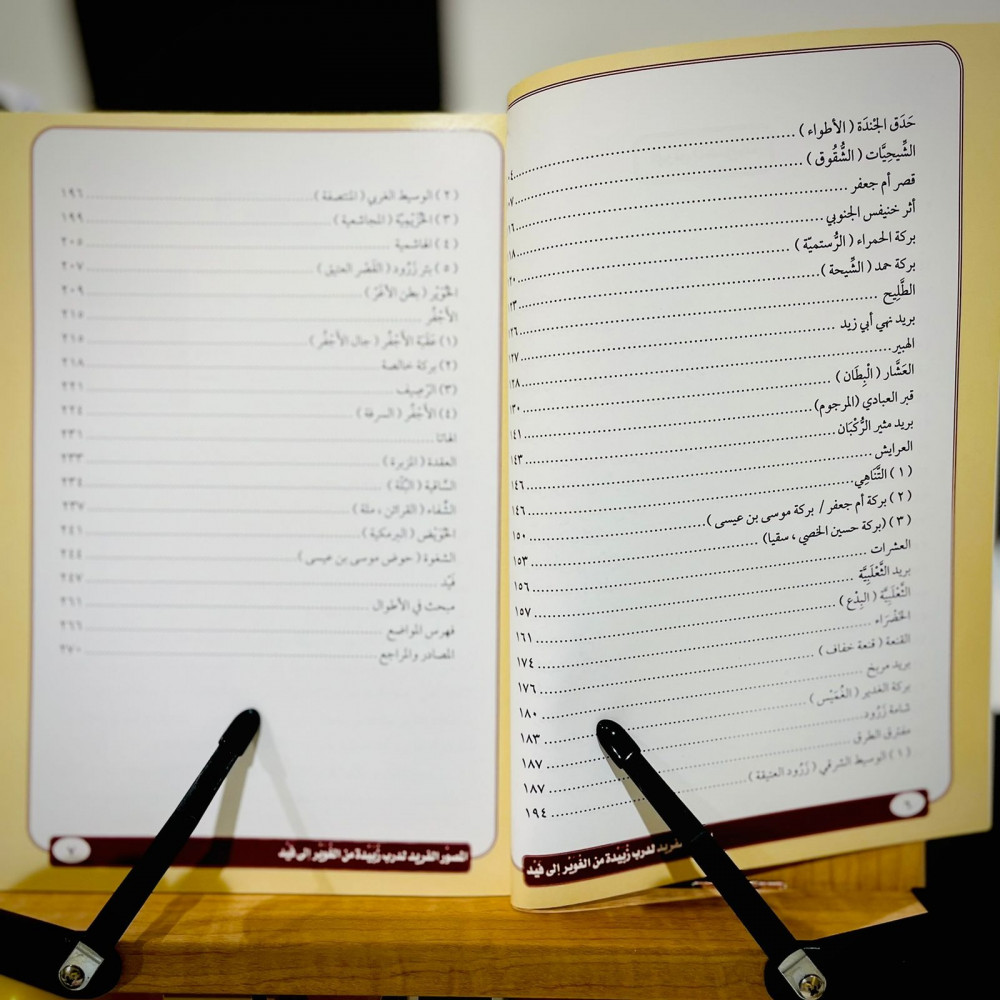 حَدَق الجُندَة ( الأطواء )
الشِّيحِيَّات ( الشُّقُوق )
قصر أم جعفر
أثر خنيفس الجنوبي
بركة الحمراء ( الرُّستميّة )
بركة حمد ( الشِّيحة )
الطَّلِيح
بريد نهي أبي زيد
الهبير
العَشَّار ( الْبِطَان )
قبر العبادي (المرجوم)
بريد مثير الرُّكْبَان
العرايش
( ١ ) التَّنَاهِي ١٤٦
( ٢ ) بركة أم جعفر / بركة موسى بن عيسى ) ١٥٠
( ٣ ) (بركة حسين الخصي ، سقيا) ١٥٣
العشرات ١٥٦
بريد الثَّعْلَبِيَّة ١٥٧
الثَّعْلَبِيَّة ( البِدْع ) ١٦١
الخَضْرَاء ١٧٤
القنعة ( قنعة خفاف ) ١٧٦
بريد مريخ ١٨٠
بركة الغدير ( الغُمَيْس ) ١٨٣
شامة زَرُود ١٨٧
مفترق الطرق ١٨٧
( ١ ) الوسيط الشرقي ( زَرُود العتيقة ) ١٩٤
٦
لدرب زُبَيْدة من الغُوَيْر إلى فَيْد
( ٢ ) الوسيط الغربي ( المنتصفة ) ١٩٦
( ٣ ) الخُزَيْمِيَّة ( المجاشعية ) ١٩٩
( ٤ ) الهاشمية ٢٠٥
( ٥ ) بئر زَرُود ( القَصْر العتيق ) ٢٠٧
الخُوَيْر ( بطن الأغَرّ ) ٢٠٩
الأَجْفُر ٢١٥
(١) عَقَبَة الأَجْفُر ( جال الأَجْفُر ) ٢١٥
(٢) بركة خالصة ٢١٨
(٣) الرّصِيف ٢٢١
(٤) الأَجْفُر ( السرفة ) ٢٢٤
٢٣١
العقدة ( المزيرة ) ٢٣٣
السَّاقية ( ) ٢٣٤
الشِّفاء ( القرائن ، ملة ) ٢٣٧
الحُوَيْض ( البرمكية ) ٢٤١
الشغوة ( حوض موسى بن عيسى ) ٢٤٤
فَيْد ٢٤٧
مبحث في الأطوال ٢٦١
فهرس المواضع ٢٦٦
المصادر والمراجع ٢٧٠
المصوّر الفريد لدرب زُبَيْدة من الغُوَيْر إلى فَيْد
٧